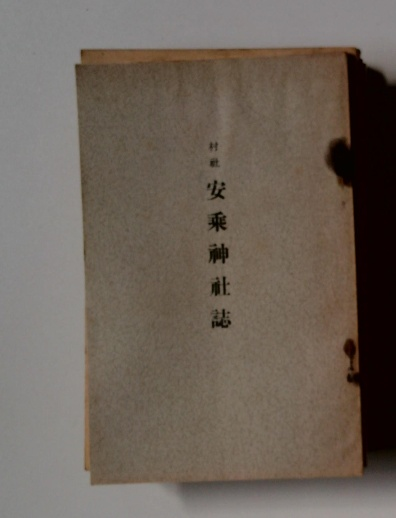 村社
安乗神社誌